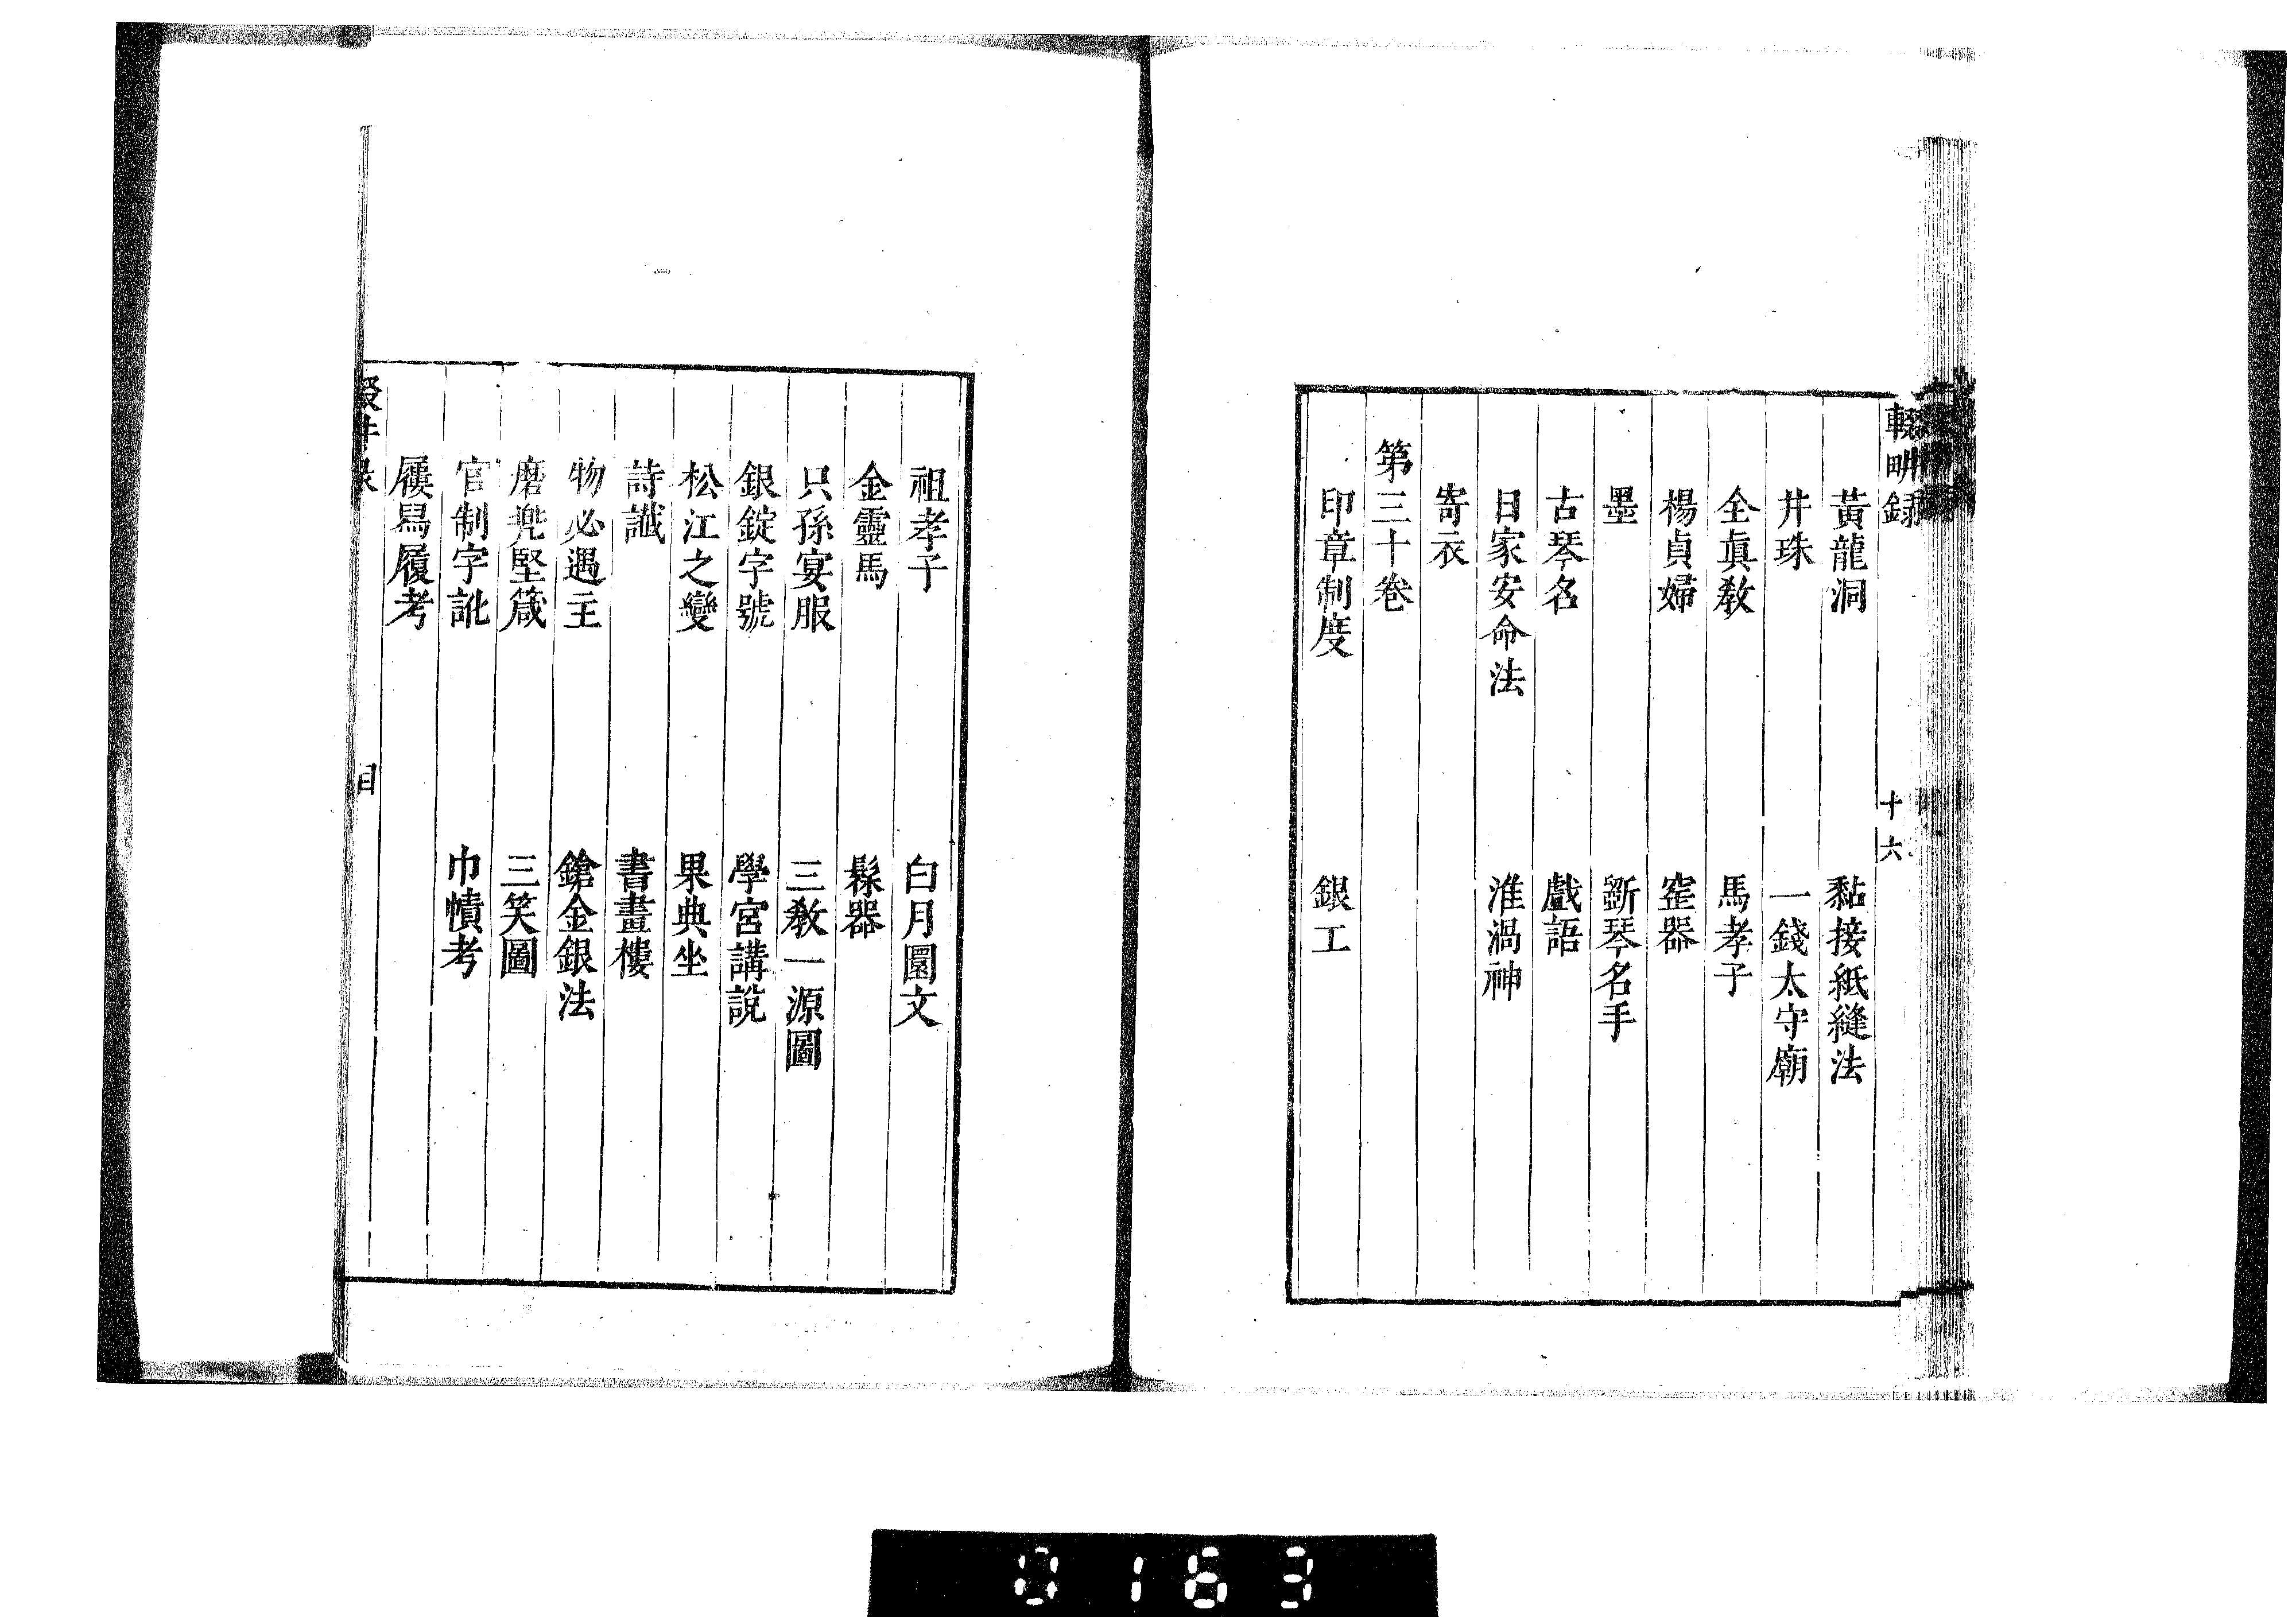 輟畊錄
十六
黃龍洞　黏接紙縫法
井珠　一錢太守廟
全眞敎　馬孝子
楊貞婦　窰器
墨　斲琴名手
古琴名　戲語
日家安命法　淮渦神
寄衣
第三十卷
印章制度　銀工
祖孝子　白月圓文
金靈馬　髹器
只孫宴服　三敎一源圖
銀錠字號　學宮講說
松江之變　果典坐
詩讖　書畫樓
物必遇主　鎗金銀法
磨兜堅箴　三笑圖
官制字訛　巾幘考
屨舄履考
目
0163